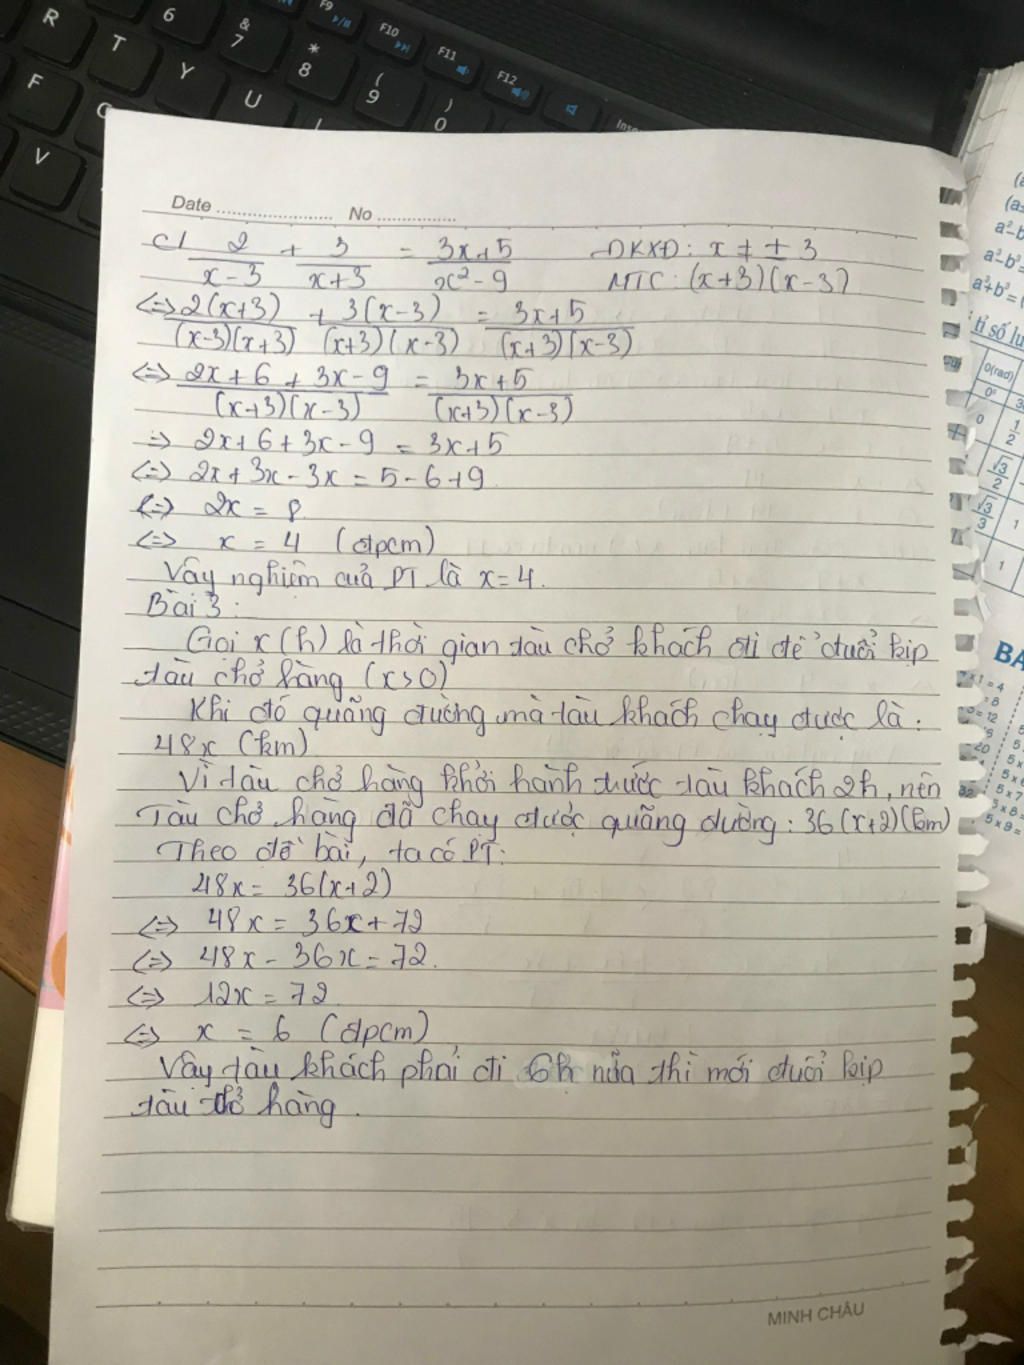 R T F V 6 & 7 Y U * 8 ( 9 ) 0 F9 F10 F11 F12
Date No
c/ 2/(x-3) + 3/(x+3) = (3x+5)/(x²-9) ĐKXĐ: x ≠ ± 3
MTC: (x+3)(x-3)
<=> 2(x+3)/((x-3)(x+3)) + 3(x-3)/((x+3)(x-3)) = (3x+5)/((x+3)(x-3))
<=> (2x+6+3x-9)/((x+3)(x-3)) = (3x+5)/((x+3)(x-3))
=> 2x+6+3x-9 = 3x+5
<=> 2x+3x-3x = 5-6+9
<=> 2x = 8
<=> x = 4 (đpcm)
Vậy nghiệm của PT là x=4.
Bài 3:
Gọi x(h) là thời gian tàu chở khách đi để đuổi kịp
tàu chở hàng (x>0)
Khi đó quãng đường mà tàu khách chạy được là:
48x (km)
Vì tàu chở hàng khởi hành trước tàu khách 2h, nên
Tàu chở hàng đã chạy được quãng đường: 36(x+2)(km)
Theo đề bài, ta có PT:
48x = 36(x+2)
<=> 48x = 36x+72
<=> 48x - 36x = 72.
<=> 12x = 72
<=> x = 6 (đpcm)
Vậy tàu khách phải đi 6h nữa thì mới đuổi kịp
tàu chở hàng.
MINH CHÂU
a²-b
a³-b³=
a³+b³=(
tỉ số lư
0(rad)
0°
0
1/2
√3/2
√3/3
1
1
BẢ